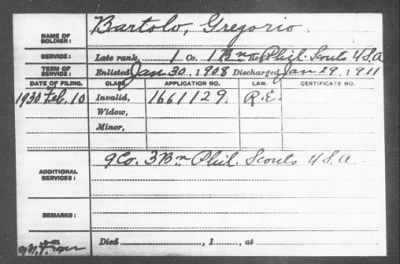 NAME OF SOLDIER: Bartolo, Gregorio.
SERVICE: Late rank, 1 Co. 1 Bn Phil. Scouts U S A
TERM OF SERVICE: Enlisted Jan 30, 1908 Discharged Jan 29, 1911
DATE OF FILING. CLASS. APPLICATION NO. LAW. CERTIFICATE NO.
1930 Feb. 10 Invalid, 1661129. R.E.
Widow,
Minor,
ADDITIONAL SERVICES: g Co. 3 Bn Phil. Scouts U S A.
REMARKS:
Died , 1 , at